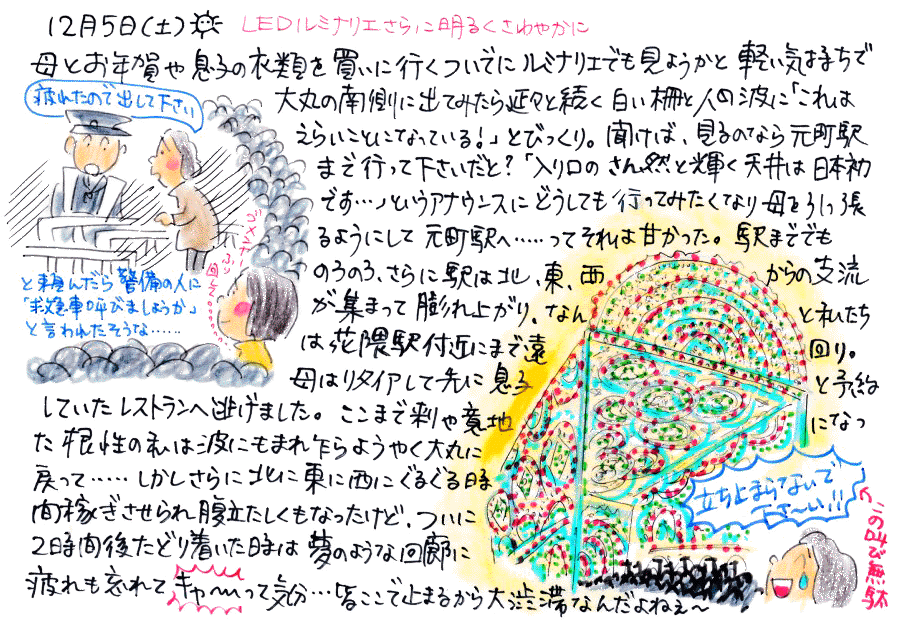 12月5日(土) LEDルミナリエさらに明るくさわやかに
母とお年賀や息子の衣類を買いに行くついでにルミナリエでも見ようかと軽い気持ちで
大丸の南側に出てみたら延々と続く白い柵と人の波に「これは
えらいことになっている!」とびっくり。聞けば、見るのなら元町駅
まで行って下さいだと?「入り口のさん然と輝く天井は日本初
です…」というアナウンスにどうしても行ってみたくなり母をひっ張
るようにして元町駅へ……ってそれは甘かった。駅まででも
のろのろ、さらに駅は北、東、西からの支流
が集まって膨れ上がり、なんと私たち
は花隈駅付近にまで遠回り。
母はリタイアして先に息子と予約
していたレストランへ逃げました。ここまで来りゃ意地になっ
た根性の私は波にもまれ乍らようやく大丸に
戻って……しかしさらに北に東に西にぐるぐる時
間稼ぎさせられ腹立たしくもなったけど、ついに
2時間後たどり着いた時は夢のような回廊に
疲れも忘れてキャ〜って気分…皆ここで止まるから大渋滞なんだよねぇ〜
疲れたので出して下さい
と頼んだら警備の人に
「救急車呼びましょうか」
と言われたそうな……
ゴメンナ
立ち止まらないで
下さ〜い!!
この叫び無駄